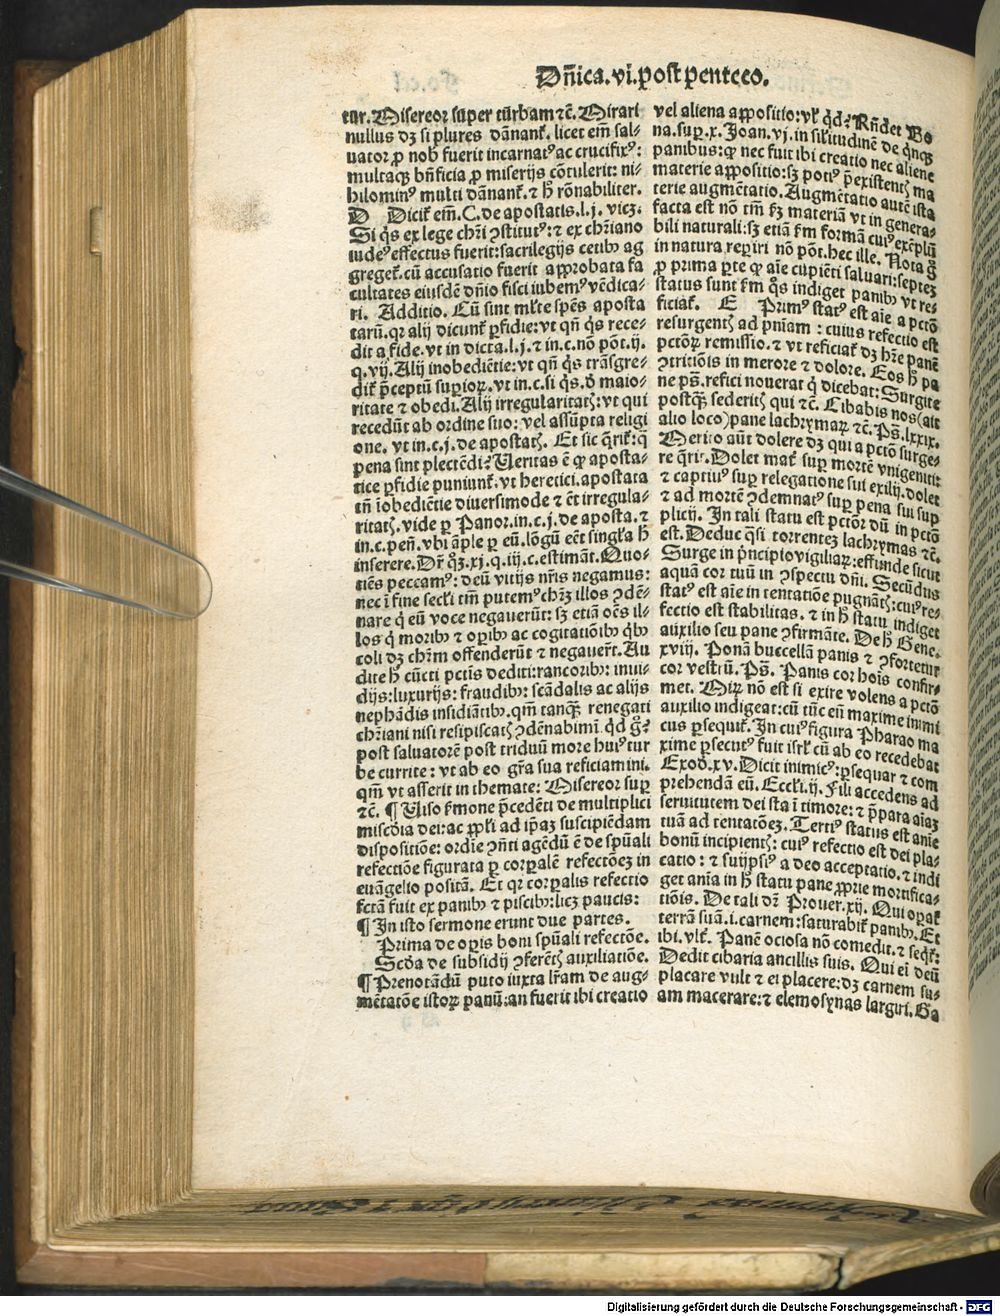 Dñica.vi.post penteco.
tur. Misereor super turbam ⁊c̄. Mirari
nullus dꝫ si plures dānant᷑. licet em̄ sal-
uator ꝓ nob̄ fuerit incarnatꝰ ac crucifixꝰ:
multaqꝫ bn̄ficia ꝓ miserijs cōtulerit: ni-
hilominꝰ multi dānant᷑. ⁊ h̄ rōnabiliter.
D Dicit᷑ em̄. C. de apostatis. l. j. vicꝫ.
Si q̇s ex lege chr̄i ↄstitutꝰ: ⁊ ex chr̄iano
iudeꝰ effectus fuerit: sacrilegijs cetibꝰ ag
greget᷑. cū accusatio fuerit approbata fa
cultates eiusdē dn̄io fisci iubemꝰ vēdica-
ri. Additio. Cū sint ml̄te sp̄es aposta
tarū. qr alij dicunt᷑ ꝑfidie: vt qn̄ q̇s rece-
dit a fide. vt in dicta. l. j. ⁊ in. c. nō pōt. ij.
q. vij. Alij inobediētie: vt qn̄ q̇s trāsgre-
dit᷑ p̄ceptū suꝑioꝝ. vt in. c. si q̇s. ð maio-
ritate ⁊ obedi. Alij irregularitatꝭ: vt qui
recedūt ab ordine suo: vel assūpta religi
one. vt in. c. j. de apostatꝭ. Et sic q̄rit᷑: q̄
pena sint plectēdi? Veritas ē ꝙ aposta-
tice ꝑfidie puniunt᷑. vt heretici. apostata
tn̄ īobediētie diuersimode ⁊ ēt irregula-
ritatꝭ. vide ꝑ Panor. in. c. j. de aposta. ⁊
in. c. pen̄. vbi āple ꝑ eū. lōgū eēt singl̄a h̄
inserere. Dr̄ q̇ꝫ. xj. q. iij. c. estimāt. Quo-
tiēs peccamꝰ: deū vitijs nr̄is negamus:
nec ī fine secl̄i tm̄ putemꝰ chr̄ꝫ illos ↄdē-
nare q̇ eū voce negauerūt: sꝫ etiā oēs il-
los q̇ moribꝰ ⁊ oꝑibꝰ ac cogitatiōibꝰ q̇bꝰ
coli dꝫ chr̄m offenderūt ⁊ negauerūt. Au
dite h̄ cūcti pctīs dediti: rancoribꝰ: inui-
dijs: luxurijs: fraudibꝰ: scādalis ac alijs
nephādis insidiātibꝰ. qm̄ tanqꝫ renegati
chr̄iani nisi resipiscatꝭ ↄdēnabimī. q̇d g̊?
post saluatorē post triduū more huiꝰ tur
be currite: vt ab eo gr̄a sua reficiamini.
qm̄ vt asserit in themate: Misereor suꝑ
⁊c̄. ¶ Viso ẜmone p̄cedēti de multiplici
mis̄cdia dei: ac ꝓpl̄i ad ip̄aꝫ suscipiēdam
dispositiōe: ordīe ↄn̄ti agēdū ē de spūali
refectiōe figurata ꝑ corꝑalē refectōeꝫ in
euāgelio positā. Et qr corꝑalis refectio
fc̄tā fuit ex panibꝰ ⁊ piscibꝰ: licꝫ paucis:
¶ In isto sermone erunt due partes.
Prima de oꝑis boni spūali refectōe.
Scd̄a de subsidij ↄferētꝭ auxiliatiōe.
¶ Prenotādū puto iuxta lr̄am de aug-
mētatōe istoꝝ panū: an fuerit ibi creatio
vel aliena appositio: vl̄ q̇d? Rn̄det Bo
na. suꝑ. x. Joan. vj. in sil̄itudinē de q̇nqꝫ
panibus: ꝙ nec fuit ibi creatio nec aliene
materie appositio: sꝫ potiꝰ p̄existentꝭ ma
terie augmētatio. Augmētatio autē ista
facta est nō tm̄ ẜꝫ materiā vt in genera-
bili naturali: sꝫ etiā ẜm formā cuiꝰ exēplū
in natura reꝑiri nō pōt. hec ille. Nota g̊
ꝓ prima ꝑte ꝙ aīe cupiēti saluari: septeꝫ
status sunt ẜm q̇s indiget panibꝰ vt re-
ficiat᷑. E Primꝰ statꝰ est aīe a pctō
resurgentꝭ ad pn̄iam: cuius refectio est
pctōꝝ remissio. ⁊ vt reficiat᷑ dꝫ hr̄e panē
ↄtritiōis in merore ⁊ dolore. Eos h̄ pa
ne ps̄. refici nouerat q̇ dicebat: Surgite
postqꝫ sederitꝭ qui ⁊c̄. Cibabis nos (ait
alio loco) pane lachrymaꝝ ⁊c̄. Ps̄. lxxix.
Merito aūt dolere dꝫ qui a pctō surge-
re q̄rit᷑. Dolet mat᷑ suꝑ mortē vnigeniti:
⁊ captiuꝰ suꝑ relegatione sui exilij. dolet
⁊ ad mortē ↄdemnatꝰ suꝑ pena sui sup
plicij. In tali statu est pctōr dū in pctō
est. Deduc q̄si torrenteꝫ lachrymas ⁊c̄.
Surge in pͥncipio vigiliaꝝ: effunde sicut
aquā cor tuū in ↄspectu dn̄i. Secūdus
statꝰ est aīe in tentatiōe pugnātꝭ: cuiꝰ re-
fectio est stabilitas. ⁊ in h̄ statu indiget
auxilio seu pane ↄfirmāte. De h̄ Gene.
xviij. Ponā buccellā panis ⁊ ↄfortetur
cor vestrū. Ps̄. Panis cor hoīs confir-
met. Miꝝ nō est si exire volens a pctō
auxilio indigeat: cū tūc eū maxime inimi
cus ꝑsequit᷑. In cuiꝰ figura Pharao ma
xime ꝑsecutꝰ fuit isrl̄ cū ab eo recedebat
Exod. xv. Dicit inimicꝰ: ꝑsequar ⁊ com
prehendā eū. Eccl̄i. ij. Fili accedens ad
seruitutem dei sta ī timore: ⁊ p̄para aīaꝫ
tuā ad tentatōeꝫ. Tertiꝰ status est anīe
bonū incipientꝭ: cuiꝰ refectio est dei pla-
catio: ⁊ suijpsiꝰ a deo acceptatio. ⁊ indi
get anīa in h̄ statu pane ꝓprie mortifica-
tiōis. De tali dr̄ Prouer. xij. Qui oꝑat᷑
terrā suā. i. carnem: saturabit᷑ panibꝰ. Et
ibi. vlt᷑. Panē ociosa nō comedit. ⁊ seq̄t᷑:
Dedit cibaria ancillis suis. Qui ei deū
placare vult ⁊ ei placere: dꝫ carnem su-
am macerare: ⁊ elemosynas largiri. Ba
Digitalisierung gefördert durch die Deutsche Forschungsgemeinschaft - DFG